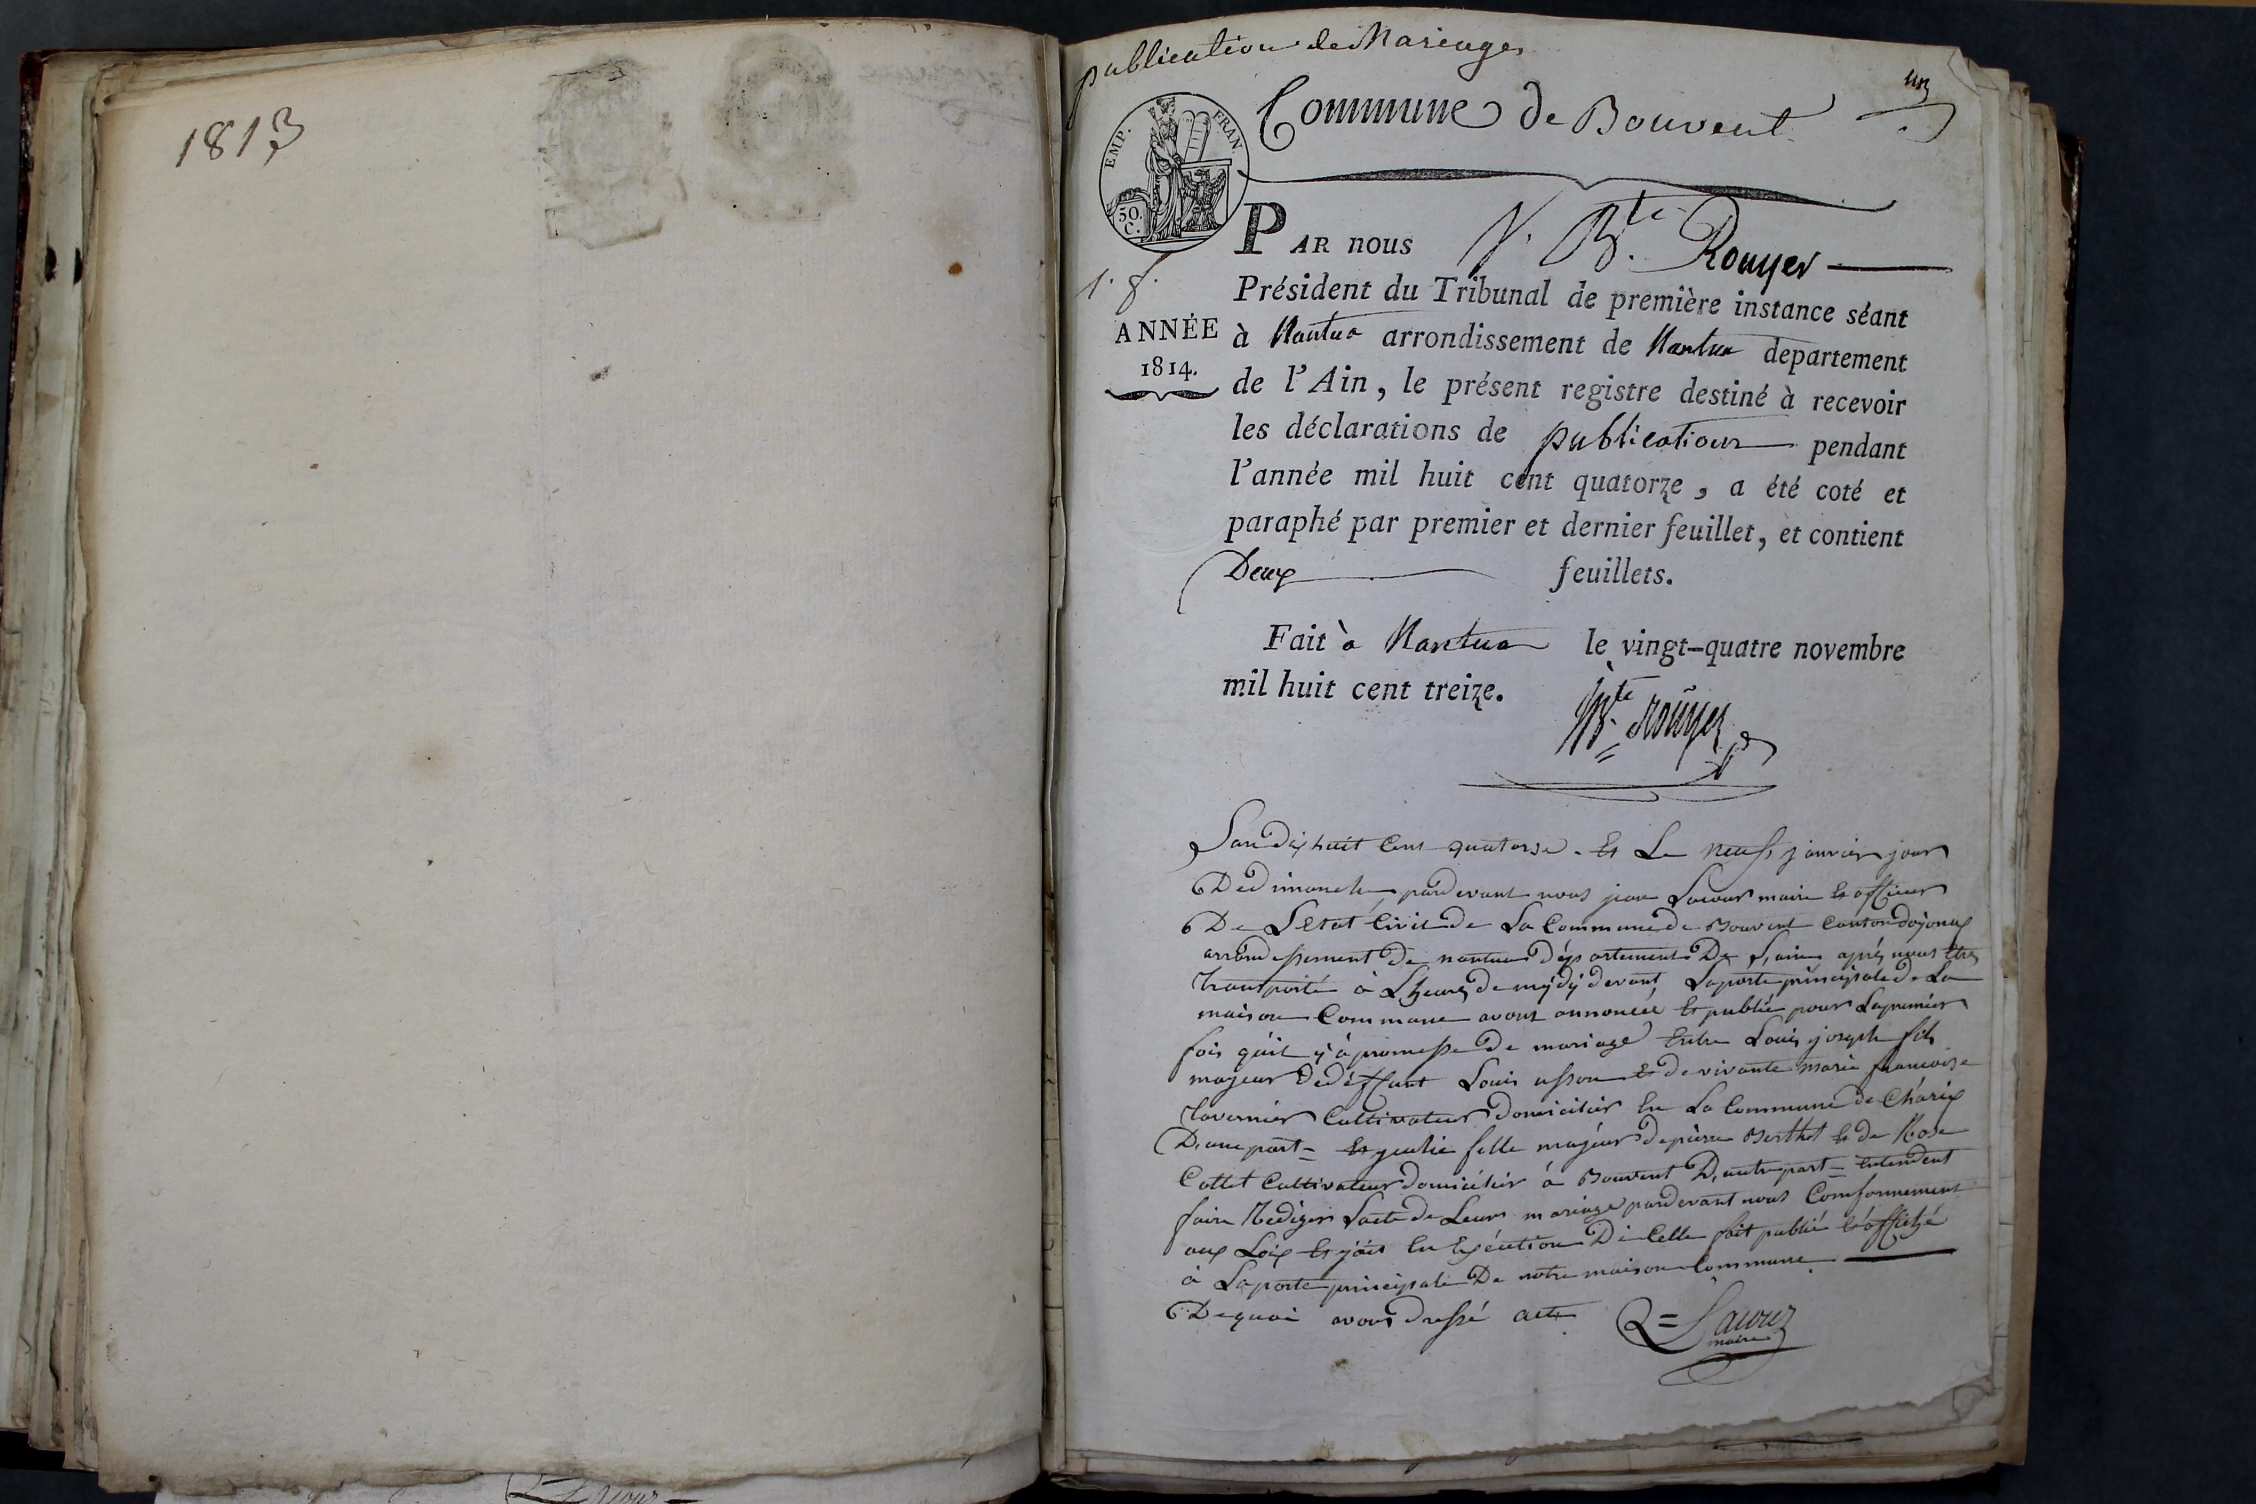 1813
publication de Mariages
Commune de Bouvent
EMP. FRAN
50. C.
PAR nous J. Bte. Rouyer
1. f.
Président du Tribunal de première instance séant
ANNÉE
1814.
à Nantua arrondissement de Nantua departement
de l'Ain, le présent registre destiné à recevoir
les déclarations de publications pendant
l'année mil huit cent quatorze, a été coté et
paraphé par premier et dernier feuillet, et contient
Deux feuillets.
Fait à Nantua le vingt-quatre novembre
mil huit cent treize.
JBte Rouyer
Lan dix huit Cent quatorse. Et Le neuf janvier jour
De dimanche, pardevant nous jean Lacour maire Et officier
De L'Etat Civil de La Commune de Bouvent Canton doyonax
arrondessement de nantua département De L'ain aprés nous Etre
transporté à L'heure de mÿdÿ devant La porte principale de La
maison Commune avons annoncée Et publié pour La premier
fois qu'il ÿ à promesse De mariage Entre Louis joseph fils
majeur De déffunt Louis usson Et de vivante marie francoise
tavernier Cultivateur Domicilier En La Commune de Charix
D'une part = Et jeulie fille majeur de pierre Berthet Et de Rose
Collet Cultivateur Domicilier à Bouvent D'autre part = Entendent
faire Rediger Lacte de Leurs mariage pardevant nous Comformement
aux Loix Et j'ais En Exécution Di Celle fait publié Et affiché
à La porte principale De notre maison Commune
De quoi avons dressé acte
Lacour
maire